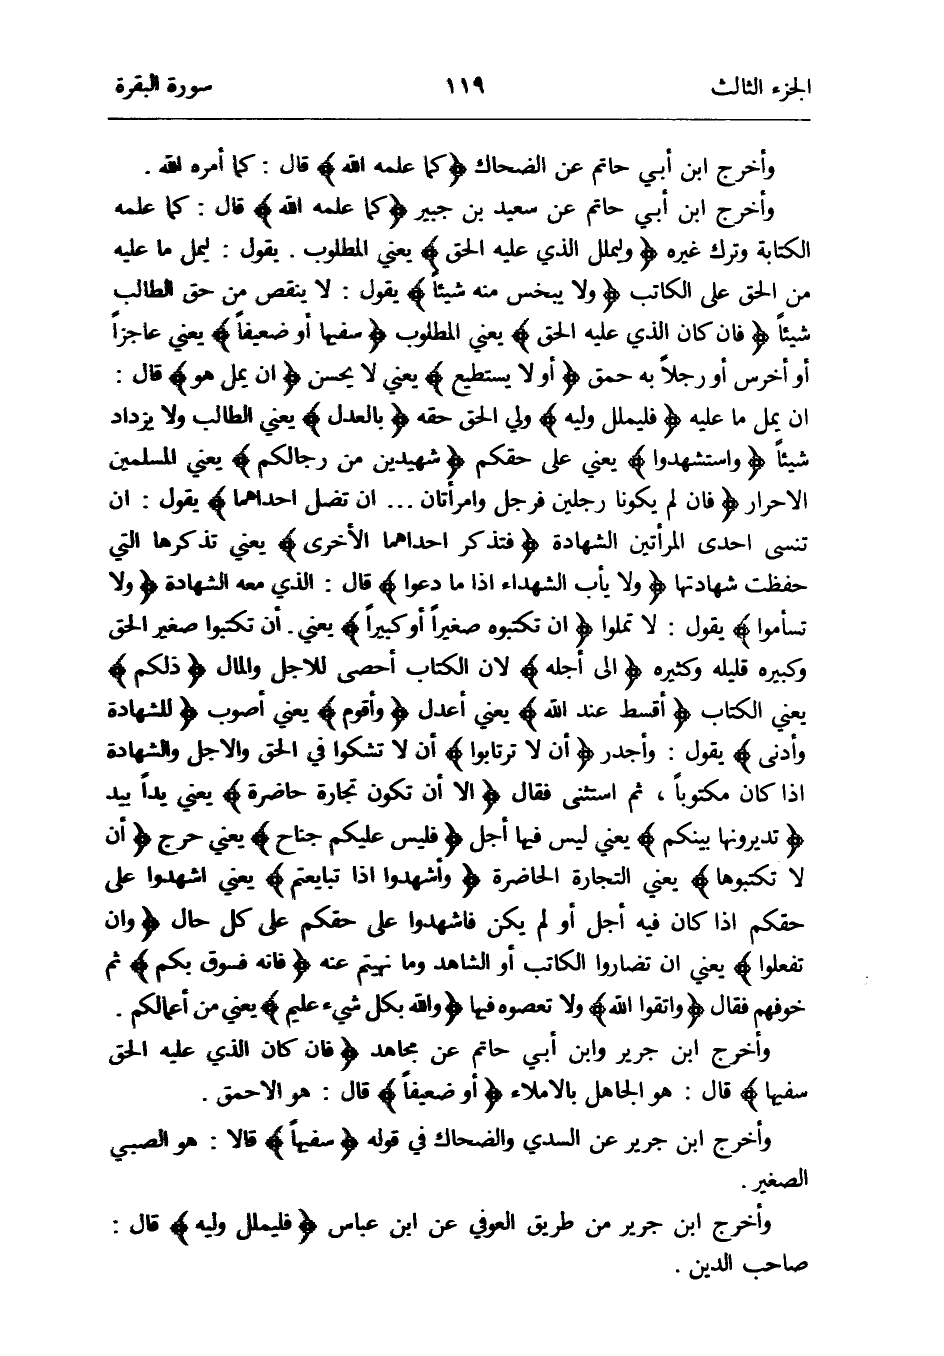 الجزء الثالث ١١٩ سورة البقرة
وأخرج ابن أبي حاتم عن الضحاك ﴿كما علمه الله﴾ قال : كما أمره الله .
وأخرج ابن أبي حاتم عن سعيد بن جبير ﴿كما علمه الله﴾ قال : كما علمه
الكتابة وترك غيره ﴿وليملل الذي عليه الحق﴾ يعني المطلوب . يقول : ليمل ما عليه
من الحق على الكاتب ﴿ولا يبخس منه شيئاً﴾ يقول : لا ينقص من حق الطالب
شيئاً ﴿فان كان الذي عليه الحق﴾ يعني المطلوب ﴿سفيها أو ضعيفاً﴾ يعني عاجزاً
أو أخرس أو رجلاً به حمق ﴿أو لا يستطيع﴾ يعني لا يحسن ﴿ان يمل هو﴾ قال :
ان يمل ما عليه ﴿فليملل وليه﴾ ولي الحق حقه ﴿بالعدل﴾ يعني الطالب ولا يزداد
شيئاً ﴿واستشهدوا﴾ يعني على حقكم ﴿شهيدين من رجالكم﴾ يعني المسلمين
الاحرار ﴿فان لم يكونا رجلين فرجل وامرأتان ... ان تضل احداهما﴾ يقول : ان
تنسى احدى المرأتين الشهادة ﴿فتذكر احداهما الأخرى﴾ يعني تذكرها التي
حفظت شهادتها ﴿ولا يأب الشهداء اذا ما دعوا﴾ قال : الذي معه الشهادة ﴿ولا
تسأموا﴾ يقول : لا تملوا ﴿ان تكتبوه صغيراً أو كبيراً﴾ يعني. أن تكتبوا صغير الحق
وكبيره قليله وكثيره ﴿الى أجله﴾ لان الكتاب أحصى للاجل والمال ﴿ذلكم﴾
يعني الكتاب ﴿أقسط عند الله﴾ يعني أعدل ﴿وأقوم﴾ يعني أصوب ﴿للشهادة
وأدنى﴾ يقول : وأجدر ﴿أن لا ترتابوا﴾ أن لا تشكوا في الحق والاجل والشهادة
اذا كان مكتوباً ، ثم استثنى فقال ﴿الا أن تكون تجارة حاضرة﴾ يعني يداً بيد
﴿تديرونها بينكم﴾ يعني ليس فيها أجل ﴿فليس عليكم جناح﴾ يعني حرج ﴿أن
لا تكتبوها﴾ يعني التجارة الحاضرة ﴿وأشهدوا اذا تبايعتم﴾ يعني اشهدوا على
حقكم اذا كان فيه أجل أو لم يكن فاشهدوا على حقكم على كل حال ﴿وان
تفعلوا﴾ يعني ان تضاروا الكاتب أو الشاهد وما نهيتم عنه ﴿فانه فسوق بكم﴾ ثم
خوفهم فقال ﴿واتقوا الله﴾ ولا تعصوه فيها ﴿والله بكل شيء عليم﴾ يعني من أعمالكم .
وأخرج ابن جرير وابن أبي حاتم عن مجاهد ﴿فان كان الذي عليه الحق
سفيها﴾ قال : هو الجاهل بالاملاء ﴿أو ضعيفاً﴾ قال : هو الاحمق .
وأخرج ابن جرير عن السدي والضحاك في قوله ﴿سفيهاً﴾ قالا : هو الصبي
الصغير .
وأخرج ابن جرير من طريق العوفي عن ابن عباس ﴿فليملل وليه﴾ قال :
صاحب الدين .